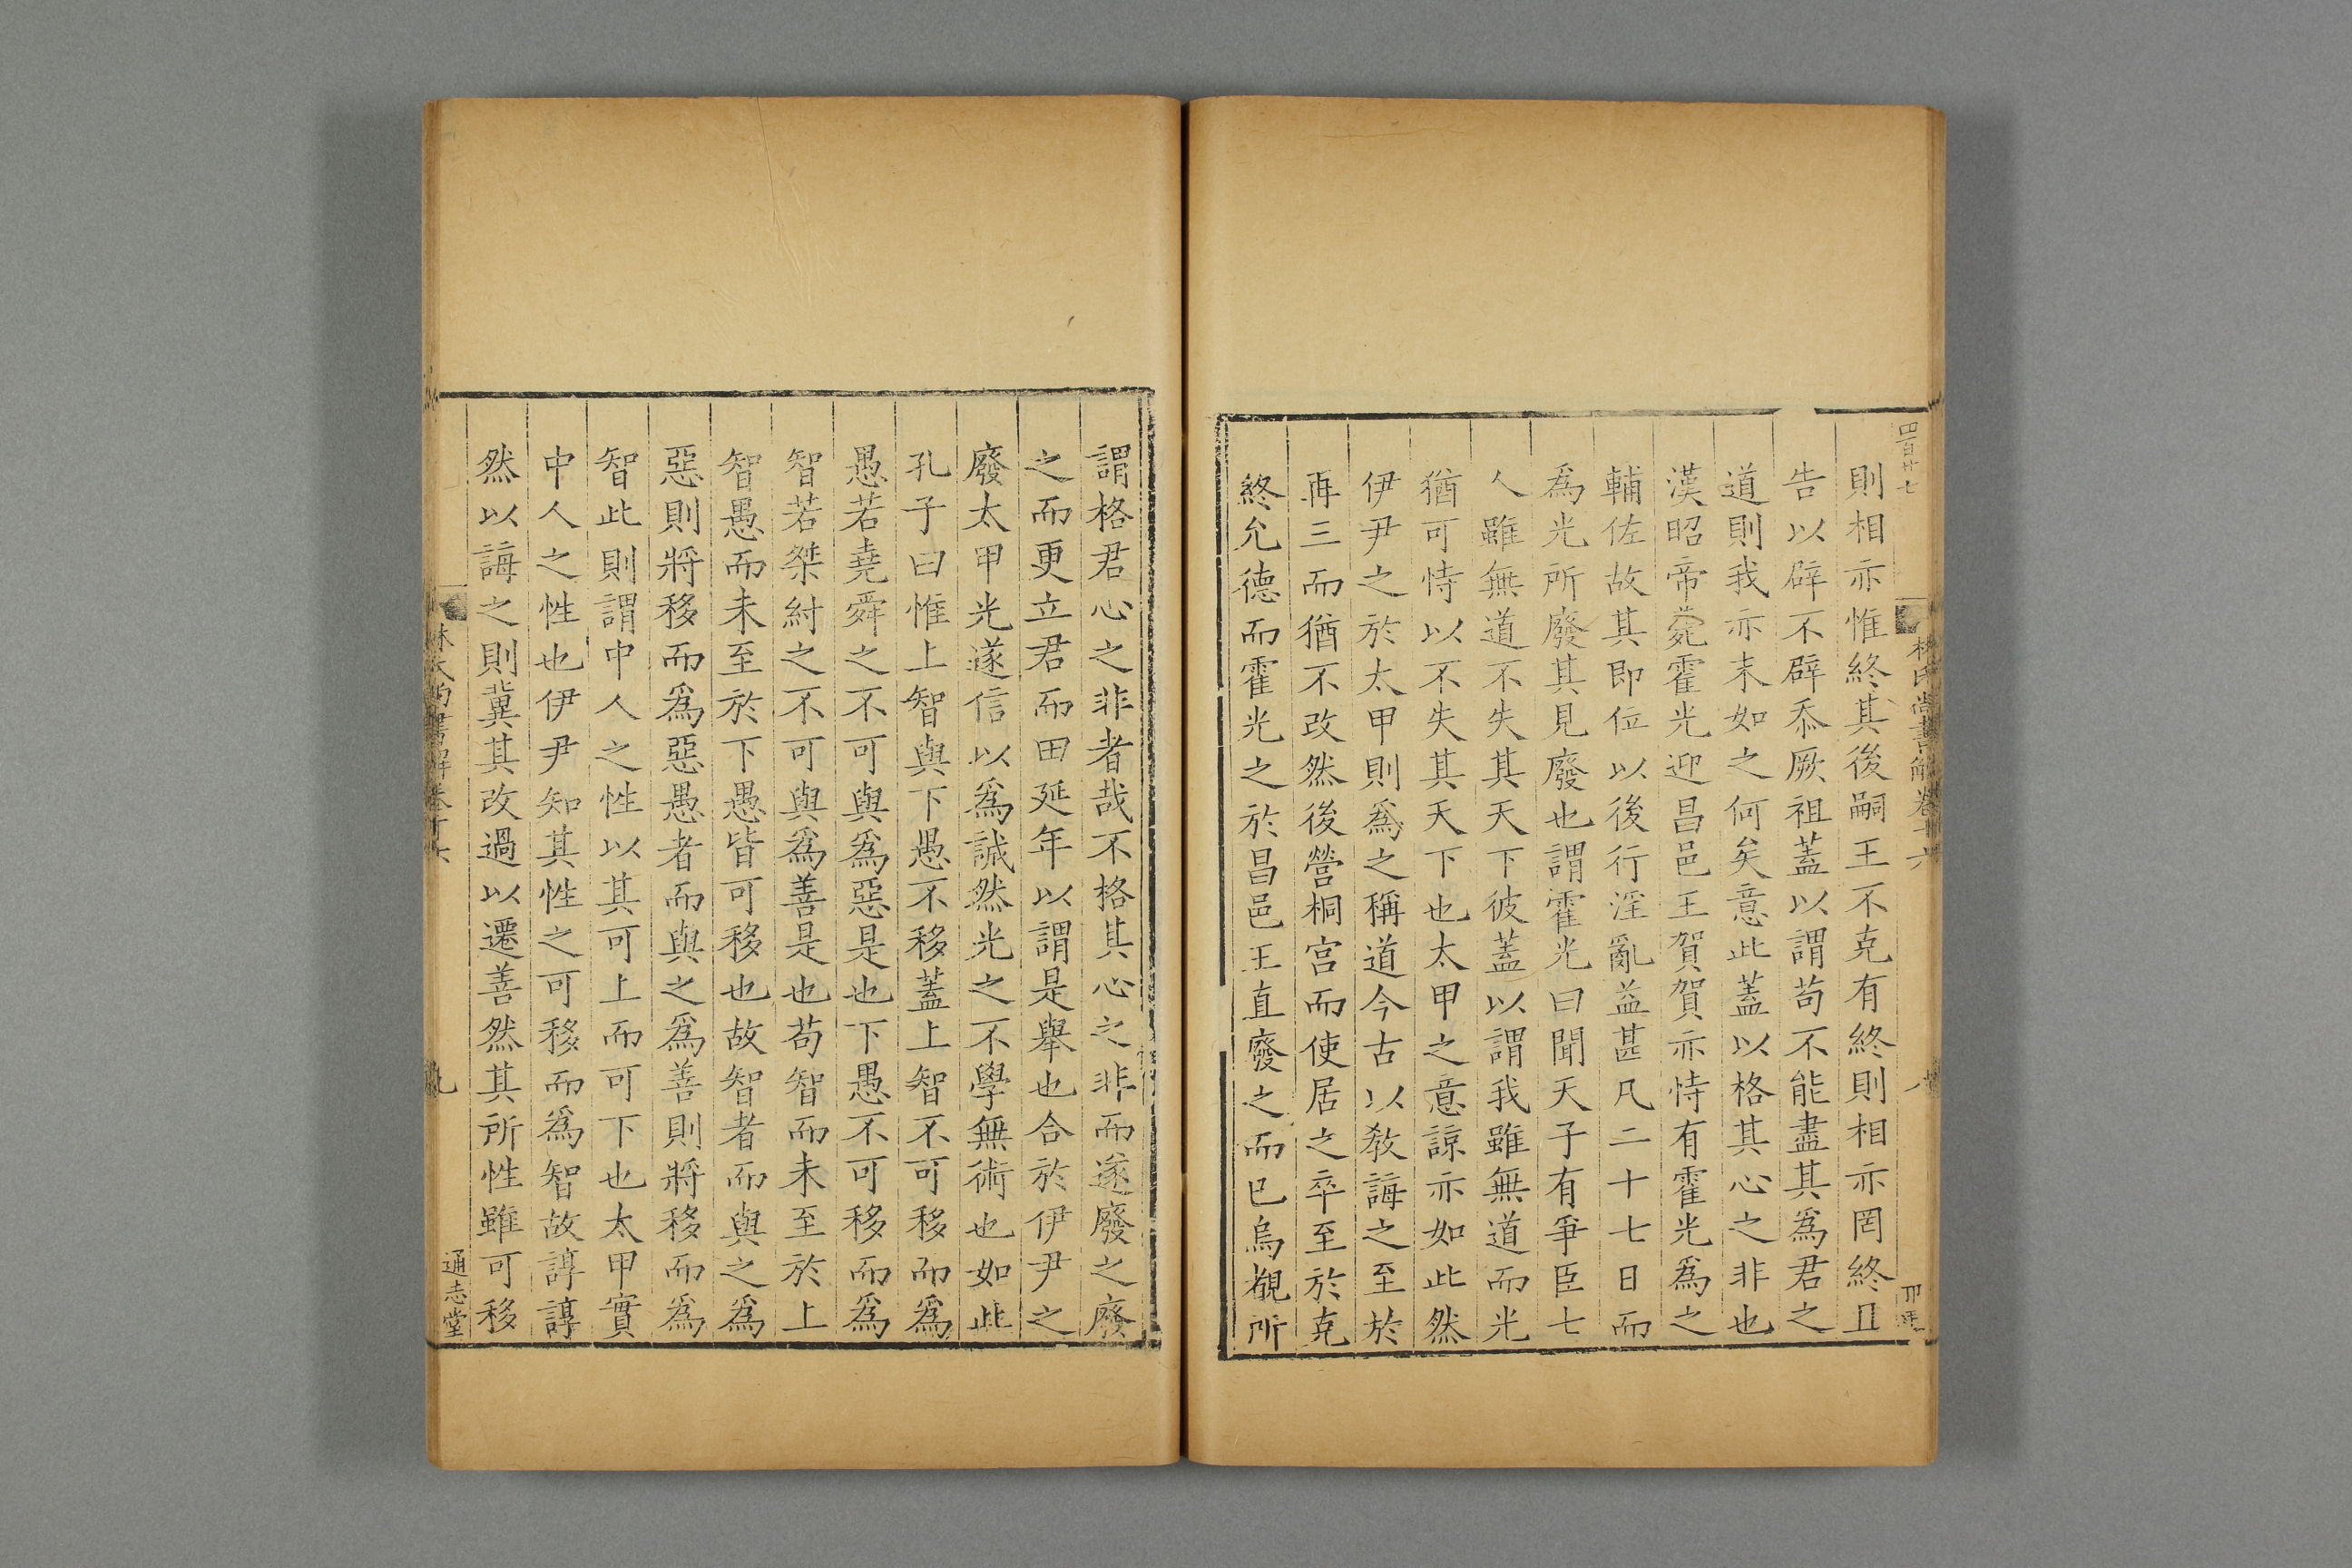 四百廿七
則相亦惟終其後嗣王不克有終則相亦罔終且
告以辟不辟忝厥祖蓋以謂苟不能盡其爲君之
道則我亦末如之何矣意此蓋以格其心之非也
漢昭帝薨霍光迎昌邑王賀賀亦恃有霍光爲之
輔佐故其即位以後行淫亂益甚凡二十七日而
爲光所廢其見廢也謂霍光曰聞天子有爭臣七
人雖無道不失其天下彼蓋以謂我雖無道而光
猶可恃以不失其天下也太甲之意諒亦如此然
伊尹之於太甲則爲之稱道今古以敎誨之至於
再三而猶不改然後營桐宮而使居之卒至於克
終允德而霍光之於昌邑王直廢之而已烏覩所
謂格君心之非者哉不格其心之非而遂廢之廢
之而更立君而田延年以謂是舉也合於伊尹之
廢太甲光遂信以爲誠然光之不學無術也如此
孔子曰惟上智與下愚不移蓋上智不可移而爲
愚若堯舜之不可與爲惡是也下愚不可移而爲
智若桀紂之不可與爲善是也苟智而未至於上
智愚而未至於下愚皆可移也故智者而與之爲
惡則將移而爲惡愚者而與之爲善則將移而爲
智此則謂中人之性以其可上而可下也太甲實
中人之性也伊尹知其性之可移而爲智故諄諄
然以誨之則冀其改過以遷善然其所性雖可移
九
通志堂